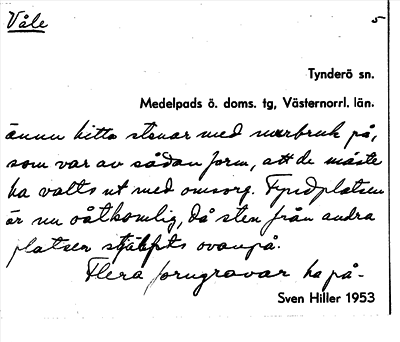 Våle 5
Tynderö sn.
Medelpads ö. doms. tg, Västernorrl. län.
ännu hitta stenar med murbruk på,
som var av sådan form, att de måste
ha valts ut med omsorg. Fyndplatsen
är nu oåtkomlig, då sten från andra
platser stjälpts ovanpå.
Flera forngravar ha på-
Sven Hiller 1953